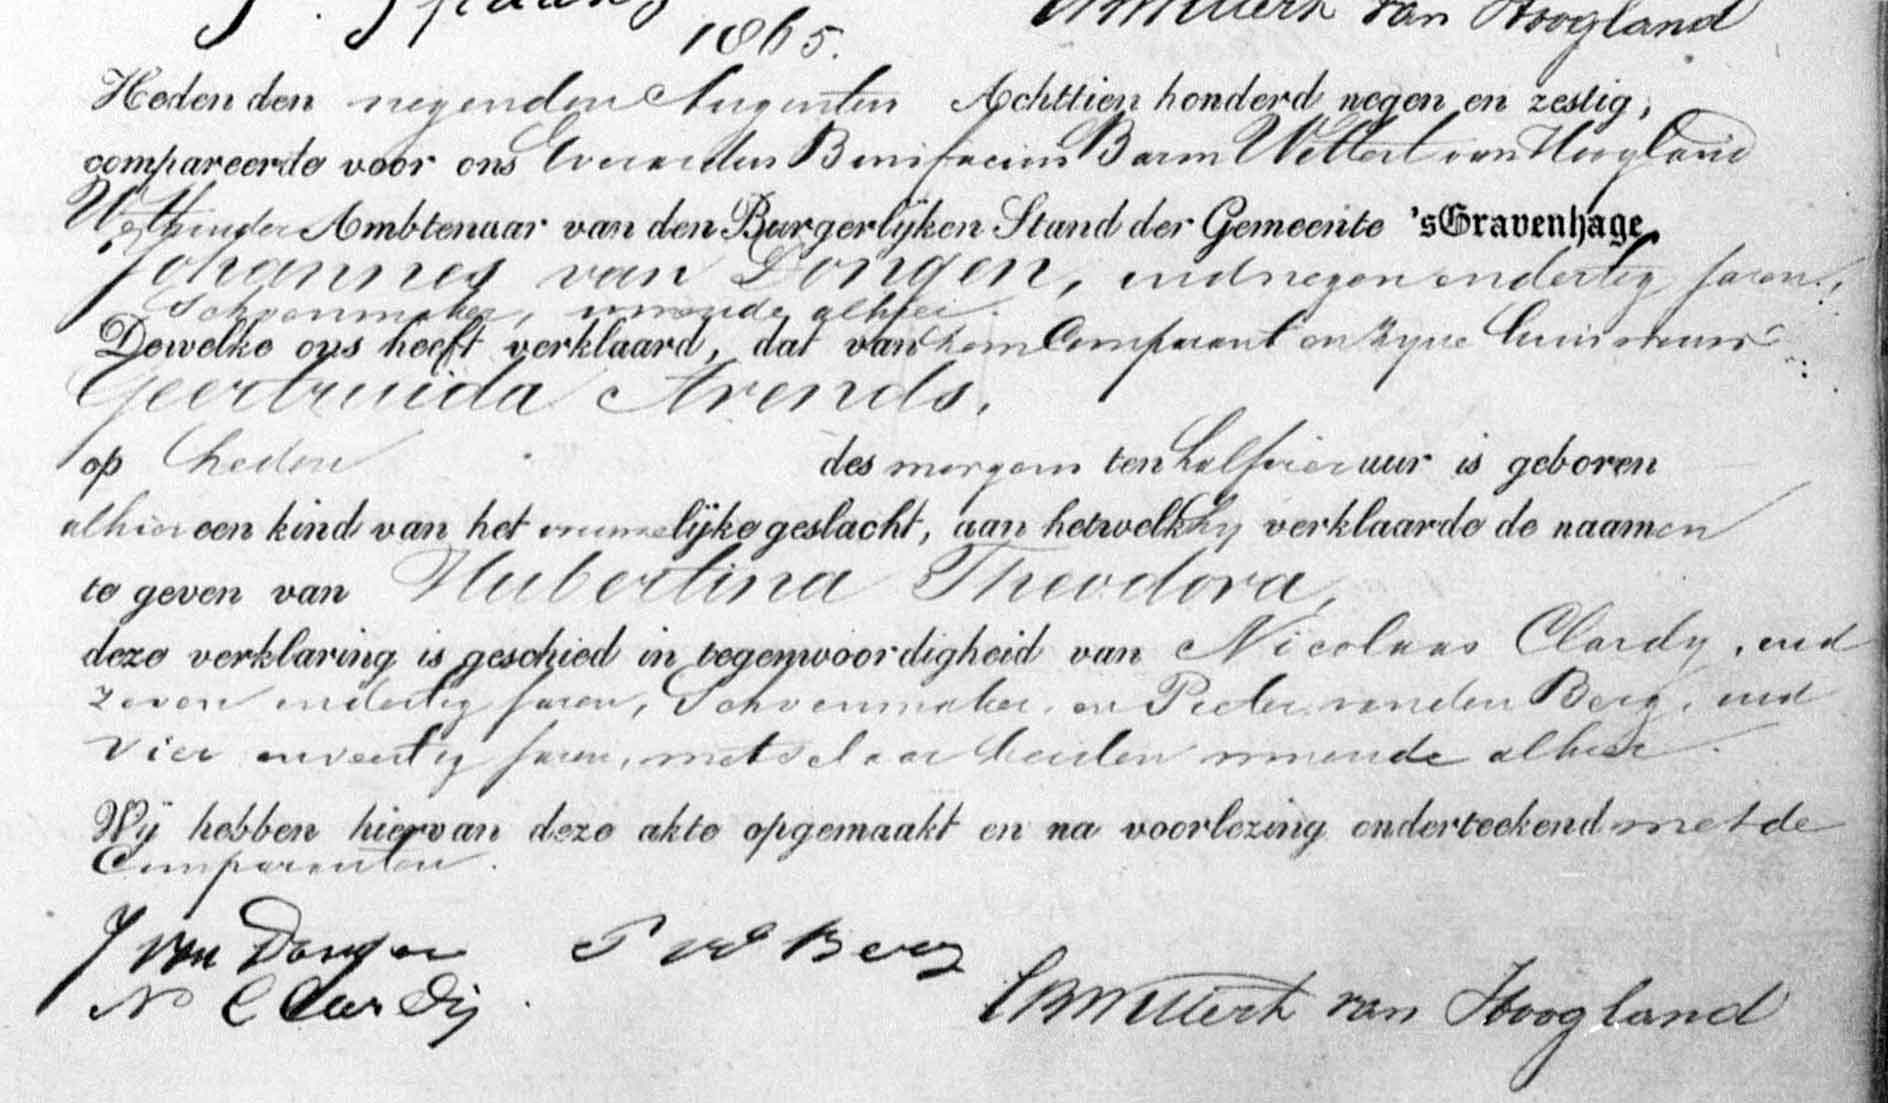 van Hoogland
1865.
Heden den negenden Augustus Achttien honderd negen en zestig,
compareerde voor ons Everardus Bonifacius Baron Wittert van Hoogland
Wethouder Ambtenaar van den Burgerlijken Stand der Gemeente 'sGravenhage
Johannes van Dongen, oud negen en dertig jaren,
Schoenmaker, wonende alhier.
Dewelke ons heeft verklaard, dat van hem Comparant en zijne huisvrouw
Geertruida Arends,
op heden des morgens ten half vier uur is geboren
alhier een kind van het vrouwelijke geslacht, aan hetwelk hij verklaarde de naamen
te geven van Hubertina Theodora,
deze verklaring is geschied in tegenwoordigheid van Nicolaas Clardy, oud
zeven en dertig jaren, Schoenmaker, en Pieter van den Berg, oud
vier en veertig jaren, metselaar beiden wonende alhier.
Wij hebben hiervan deze akte opgemaakt en na voorlezing onderteekend met de
Comparanten.
J van Dongen P vd Berg
N Clardij
EBWittert van Hoogland